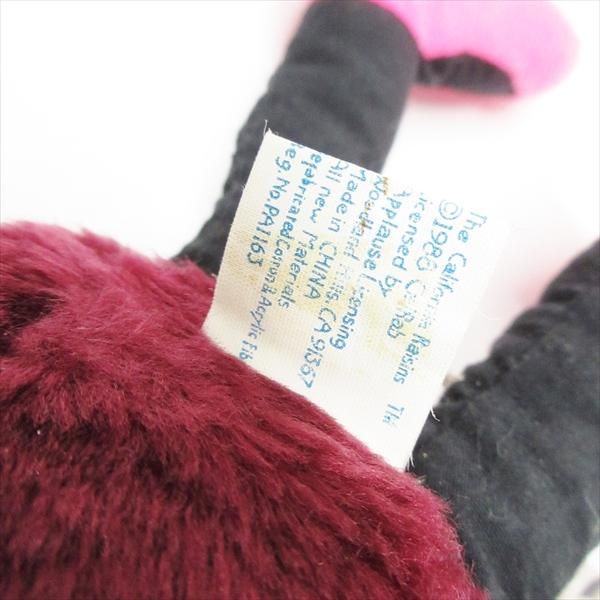 The California Raisins TM
©1986 CalRab
Licensed by
Applause Licensing
Woodland Hills.CA 91367
Made in CHINA
All new Materials
Reg.No.PA1163